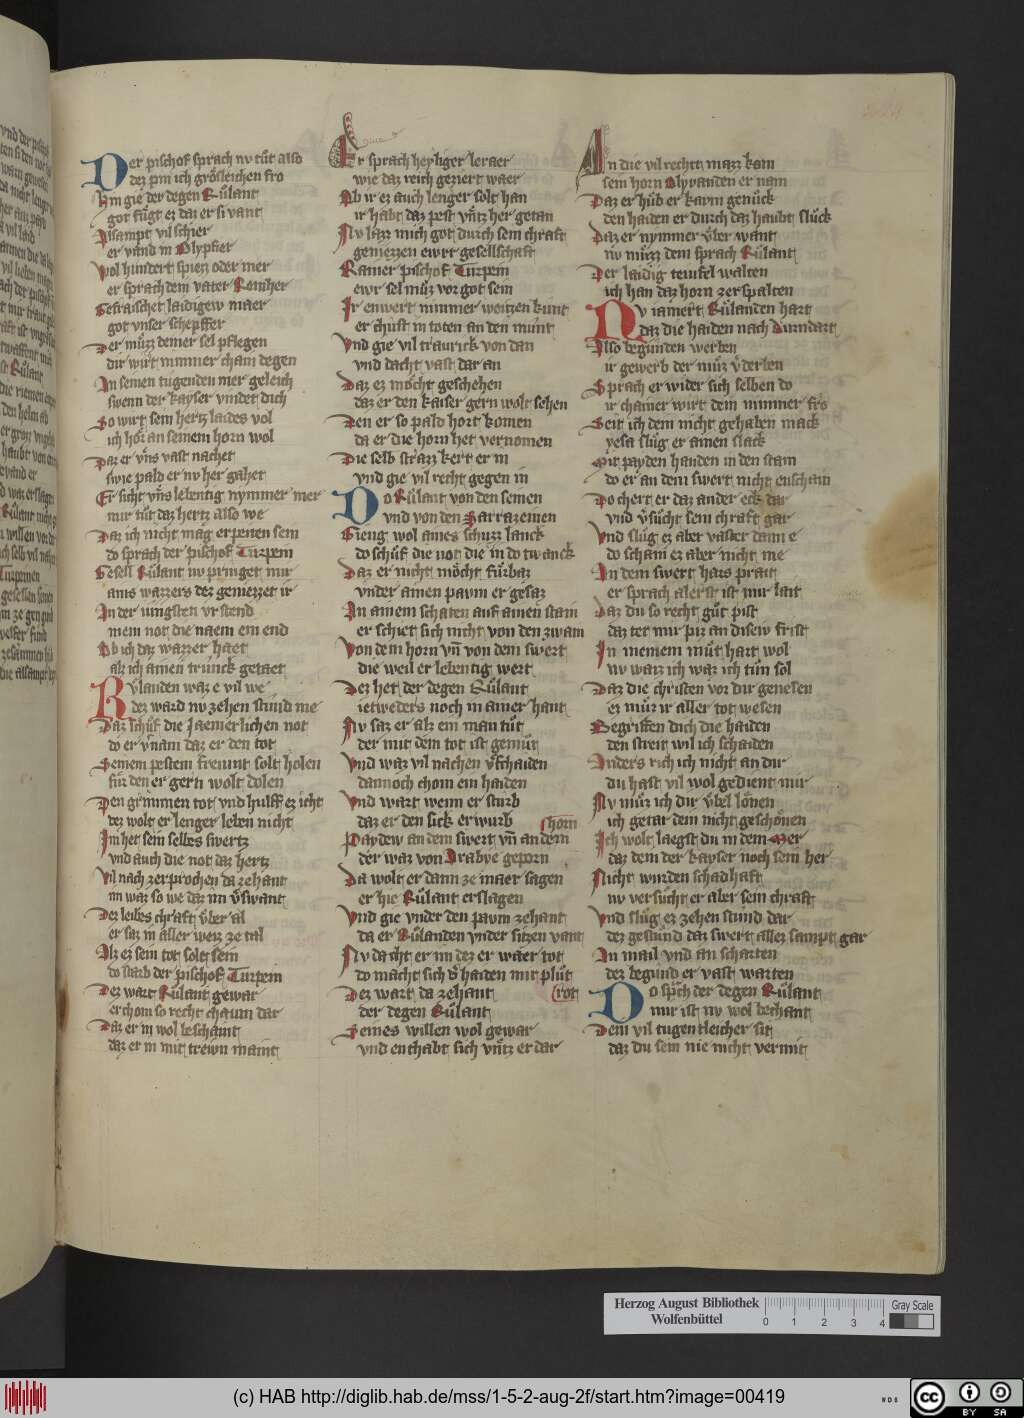 Der pischof sprach nv tut also
dez pin ich grosleichen fro
Hin gie der degen Rulant
got fugt ez daz er si vant
Alsampt vil schier
er vand in Olypfier
Wol hundert spiez oder mer
er sprach dem vater Reinher
Gefraischet laidigew maer
got vnser schepffer
Der muzz deiner sel pflegen
dir wirt nimmer chain degen
In seinen tugenden mer geleich
swenn der kayser vindet dich
So wirt sein hertz laides vol
ich hor an seinem horn wol
Daz er vns vast nachet
swie pald er nv her gahet
Er sicht vns lebentig nymmer mer
mir tut daz hertz also we
Daz ich nicht mag erpeiten sein
do sprach der pischof Turpein
Gesell Rulant nv pringet mir
ains wazzers dez geniezzet ir
In der iungsten vrstend
mein not die naem ein end
Ob ich daz wazzer haet
alz ich ainen trunck getaet
Rulanden waz e vil we
dez ward nv zehen stund me
Daz schuf die Jaemerlichen not
do er vernam daz er den tot
Seinem pestem freunt solt holen
fur den er gern wolt dolen
Den grimmen tot vnd hulff ez icht
dez wolt er lenger leben nicht
Im het sein selbes swertz
vnd auch die not daz hertz
Vil nach zerprochen da zehant
im war so we daz im verswant
Dez leibes chraft vber al
er saz in aller weiz ze tal
Alz ez sein tot solt sein
do starb der pischof Turpein
Dez wart Rulant gewar
er chom so recht chaum dar
Daz er in wol beschaint
daz er in mit trewn maint
Er sprach heyliger leraer
wie daz reich geziert waer
Ob ir ez auch lenger solt han
ir habt daz pest vntz her getan
Nv lazz mich got durch sein chraft
geniezzen ewrr gesellschaft
Rainer pischof Turpein
ewr sel muz vor got sein
Ir enwert nimmer weitzen kunt
er chust in toten an den munt
Vnd gie vil traurick von dan
vnd dacht vast dar an
Daz ez mocht geschehen
daz er den kaiser gern wolt sehen
Den er so pald hort komen
da er die horn het vernomen
Die selb strazz kert er in
vnd gie vil recht gegen in
Do Rulant von den seinen
vnd von den Sarrazeinen
Gieng wol aines schuzz lanck
do schuf die not die in do twanck
Daz er nicht mocht furbaz
vnder ainen paum er gesaz
In ainem schaten auf ainen stain
er schiet sich nicht von den zwain
Von dem horn vn von dem swert
die weil er lebentig wert
Dez het der degen Rulant
ietweders noch in ainer hant
Nv saz er alz ein man tut
der mit dem tot ist gemut
Vnd waz vil nachen verschaiden
dannoch chom ein haiden
Vnd wart wenn er sturb
daz er den sick erwurb
Paydew an dem swert vn an dem horn
der waz von Arabye geporn
Da wolt er dann ze maer sagen
er hie Rulant erslagen
Vnd gie vnder den paum zehant
da er Rulanden vnder sitzen vant
Nv dacht er im dez er waer tot
do macht sich der haiden mit plut rot
Dez wart da zehant
der degen Rulant
Seines willen wol gewar
vnd enthabt sich vntz er dar
An die vil rechte mazz kom
sein horn Olyvanden er nam
Daz er hub er kaum genuck
den haiden er durch daz haubt sluck
Daz er nymmer vber want
nv muzz dein sprach Rulant
Der laidig teufel walten
ich han daz horn zerspalten
Nv iamert Rulanden hart
daz die haiden nach Durndart
Also begunden werben
ir gewerb der muz verderben
Sprach er wider sich selben do
ir chainer wirt dein nimmer fro
Seit ich dein nicht gehaben mack
yesa slug er ainen slack
Mit payden handen in den stain
do er an dem swert nicht enschain
Do chert er daz ander eck dar
vnd versucht sein chraft gar
Vnd slug ez aber vaster dann e
do schain ez aber nicht me
In dem swert hars prait
er sprach alerst ist mir lait
Daz du so recht gut pist
daz tet mir piz an disew frist
In meinem mut hart wol
nv waiz ich waz ich tun sol
Daz die christen vor dir genesen
ez muz ir aller tot wesen
Begriffen dich die haiden
den streit wil ich schaiden
Anders rich ich nicht an dir
du hast vil wol gedient mir
Nv muz ich dir vbel lonen
ich getar dein nicht geschonen
Ich wolt laegst du in dem Mer
daz dem der kayser noch sein her
Nicht wurden schadhaft
nv versucht er aber sein chraft
Vnd slug ez zehen stund dar
dez gestund daz swert allez sampt gar
An mail vnd an scharten
dez begund er vast warten
Do sprach der degen Rulant
mir ist nv wol bechant
Dein vil tugentleicher sit
daz du sein nie nicht vermit
Herzog August Bibliothek
Wolfenbüttel
0 1 2 3 4
Gray Scale
(c) HAB http://diglib.hab.de/mss/1-5-2-aug-2f/start.htm?image=00419
WDB
CC BY SA